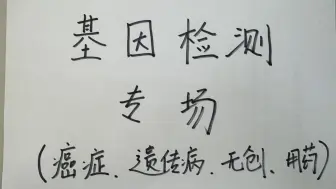 基因检测
专场
(癌症、遗传病、无创、用药)